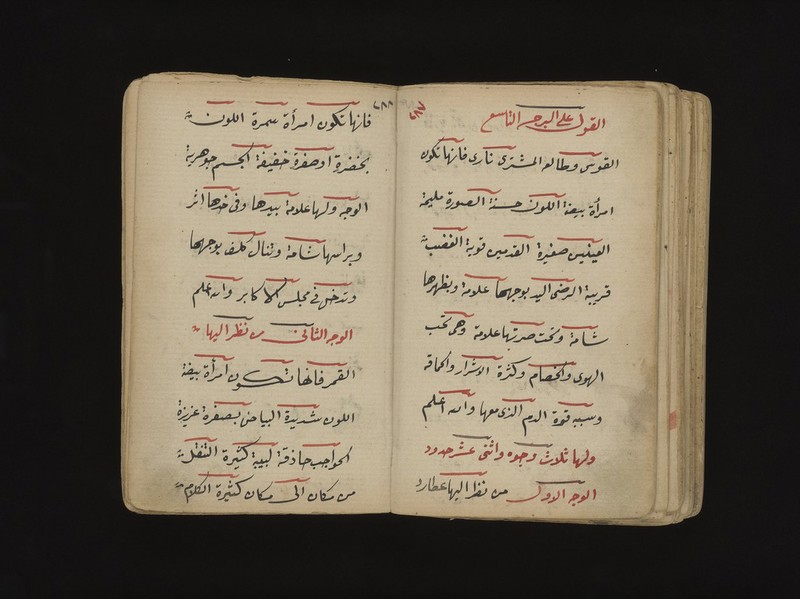 ٢٨٧
القول على البرج التاسع
القوس وطالعه المشترى نارى فانها تكون
امرأة بيضة اللون حسنة الصورة مليحة
العينين صغيرة القدمين قوية الغضب
قريبة الرضى اليد بوجهها علامة وبظهرها
شامة وتحت صدرتها علامة وهى تحب
الهوى والخصام وكثرة الاشرار والحماقة
وسببه قوة الدم الذى معها والله اعلم
ولها ثلاث وجوه واثنى عشر حدود
الوجه الاول من نظر اليها عطارد
٢٨٨
فانها تكون امرأة سمرة اللون
بخضرة او صفرة خفيفة الجسم جوهرية
الوجه ولها علامة بيدها وفى خدها اثر
وبراسها شامة وتنال كلف بوجهها
وتدخل فى مجلس الاكابر والله اعلم
الوجه الثانى من نظر اليها
القمر فانها تكون امرأة بيضة
اللون شديدة البياض بصفرة عزيزة
الحواجب حاذقة لبيبة كثيرة التنقل
من مكان الى مكان كثيرة الكلام